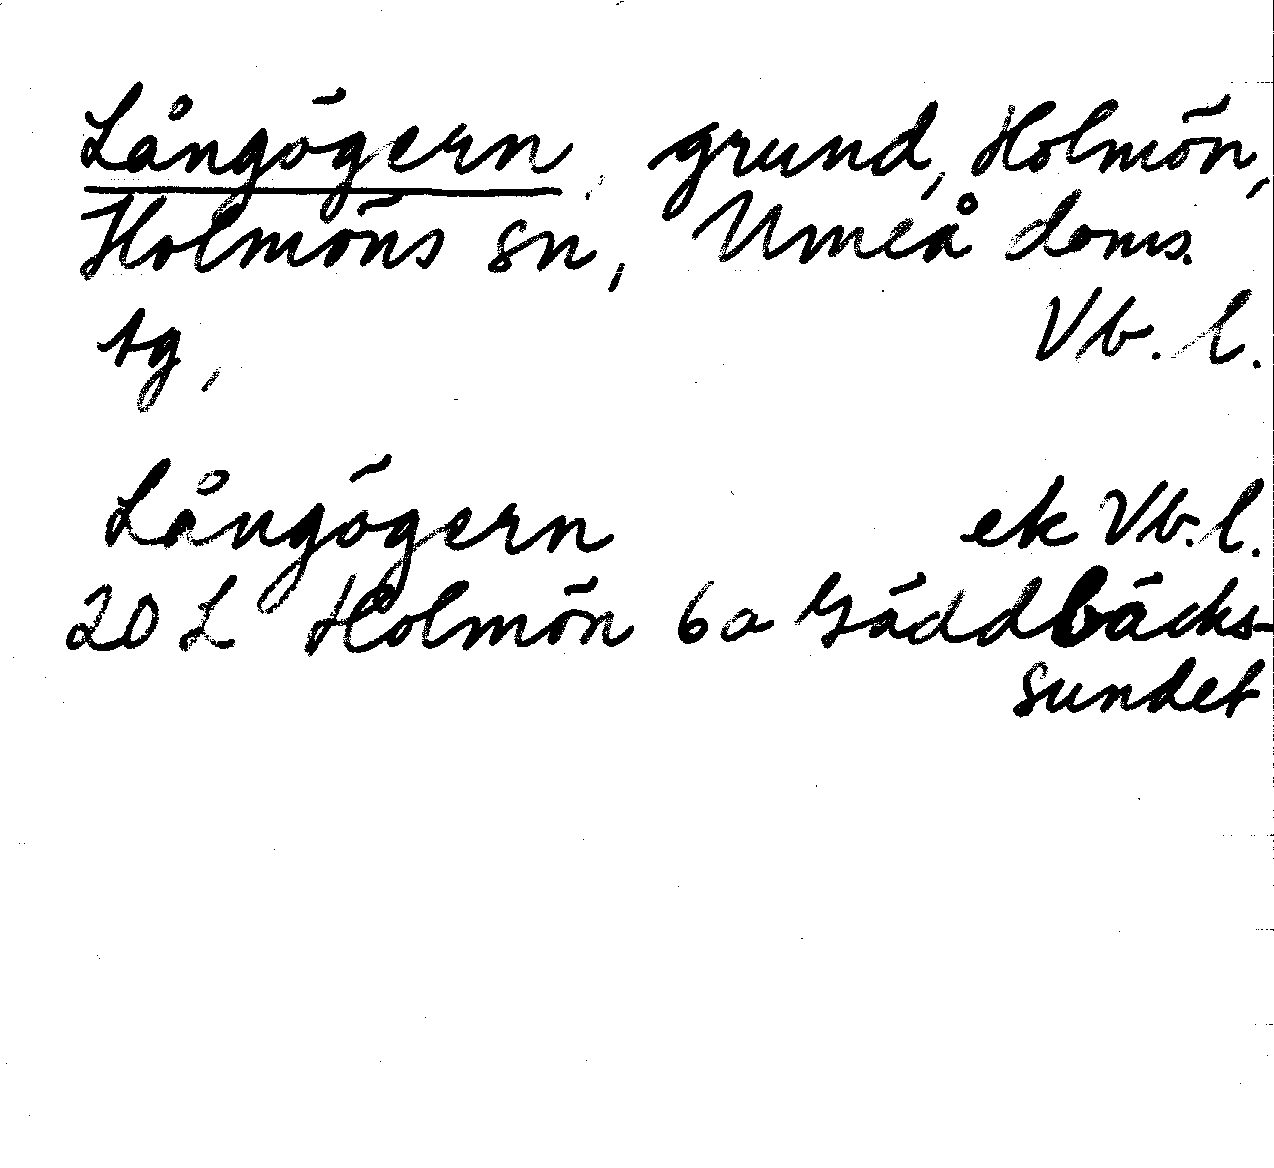 Långögern, grund, Holmön,
Holmöns sn, Umeå doms.
tg, Vb. l.
Långögern ek Vb. l.
20 L Holmön 6a Gäddbäcks-
sundet